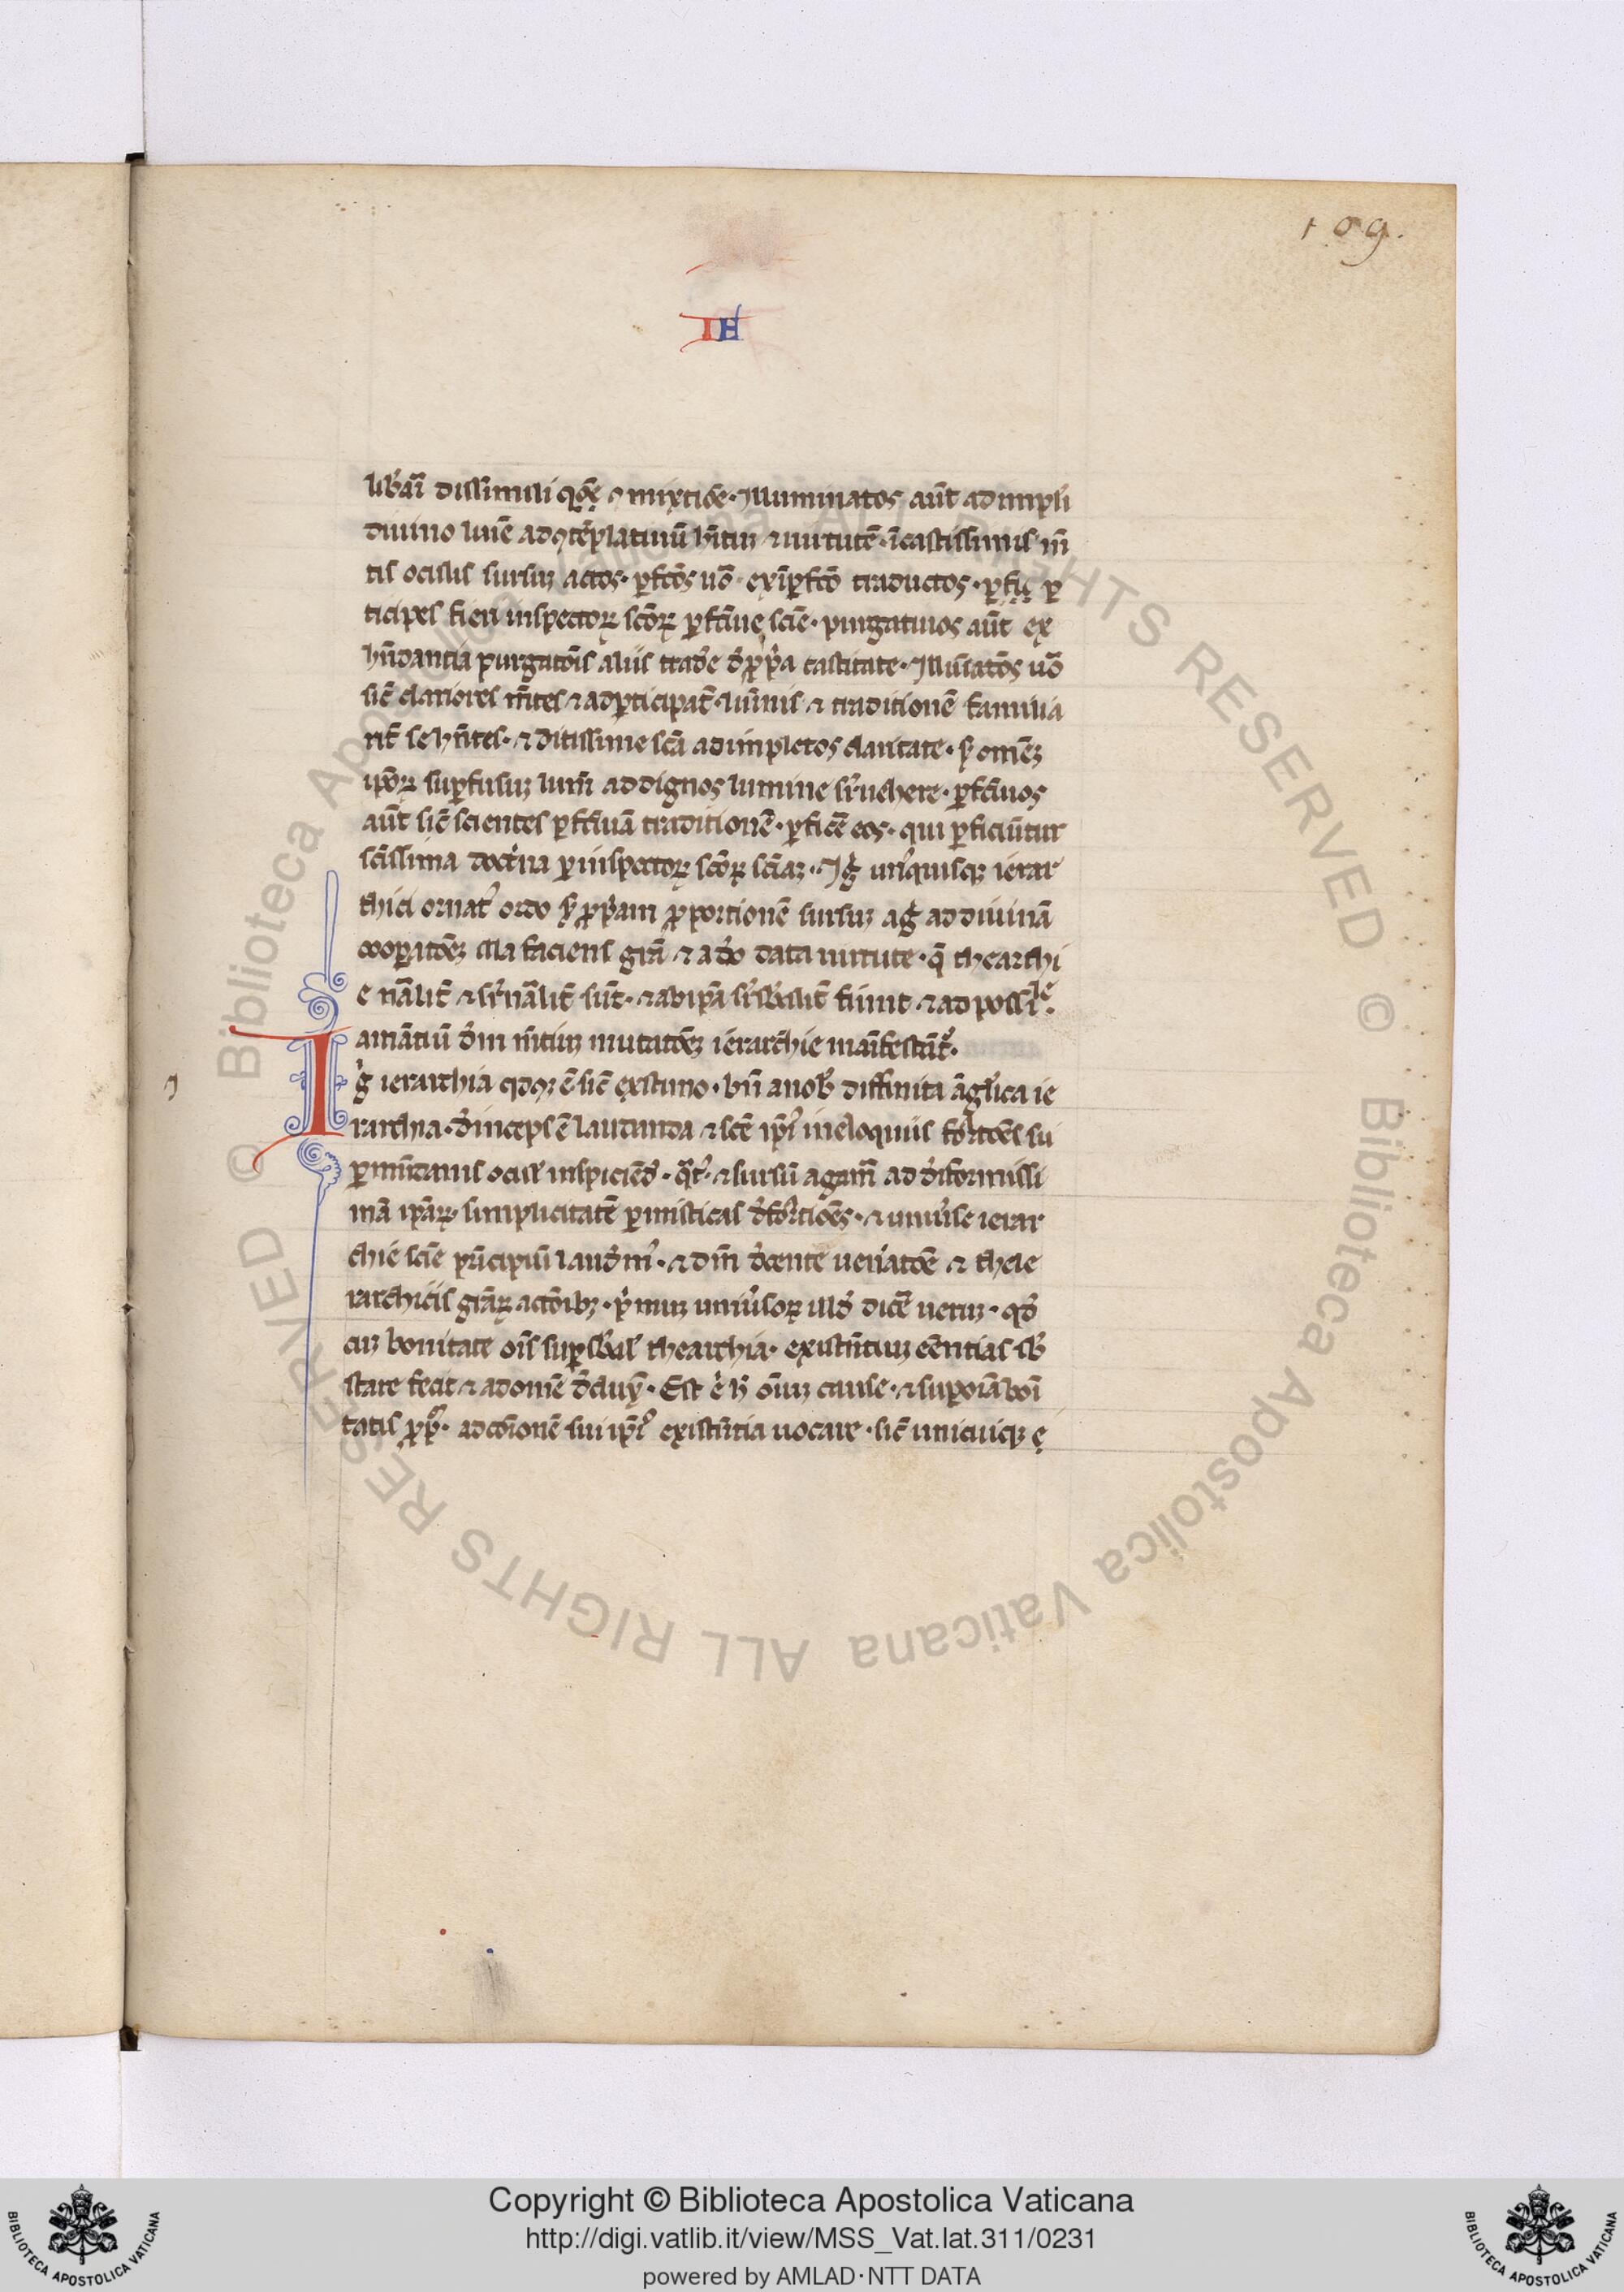 109.
IH
lib̃ari dissimili qđẹ ↄmixtiõe · Illuminatos aũt adimpl̃i
diuino lum̃e ad ↄtẽplatiuũ h̃itũ ⁊ uirtutẽ · ĩ castissimis m̃
tis oculis sursuz actos · ꝑfc̃os ũo · ex ĩꝑfc̃o traductos ·
ticipes fieri inspectoꝝ sc̃oꝝ ꝑfc̃iue sciẽ · purgatiuos aũt ex
hũdantia purgatõis aliis trad̃e đ ꝓpa castitate · Illuĩatõs ũo
sic̃ clariores m̃tes ⁊ ad ꝑticipat̃ · luĩnis ⁊ traditionẽ familia
rit̃ se hñtes · ⁊ ditissime sc̃a adimpletos claritate · omẽz
ip̃oꝝ suꝑfusuz lum̃ ad dignos lumine sr̃uehere · ꝑfc̃iuos
aũt sic̃ scientes ꝑfc̃iuã traditionẽ · ꝑfic̃e eos · qui ꝑficiũtur
sc̃issima doct̃na ꝑ inspectoꝝ sc̃oꝝ sciaz · Ig̃ unꝰquisqꝫ ierar
chici ornatꝰ ordo ꝓpam ꝓportionẽ sursuz ag̃ ad diuinã
cooꝑatõez illa faciens gr̃a ⁊ a đo data uirtute · q̃ thearchi
e nãlit̃ ⁊ sr̃nãlit̃ sũt · ⁊ ab ip̃a sr̃sb̃alit̃ fiunt ⁊ ad possile ·
amãtiũ đm m̃tiuz mutatõez ierarchie mãifestãt̃ ·
Ig̃ ierarchia qđqꝫ ẽ sic̃ exstimo · bñ a nob̃ diffinita ãglica ie
rarchia · đinceps ẽ laudanda ⁊ sc̃e ip̃iꝰ in eloquiis fõrãtões su
ꝑmũdanis ocul̃ inspiciẽd̃ · qt̃ꝰ ⁊ sursũ agam̃ ad điformissi
mã ip̃aꝝ simplicitatẽ ꝑ misticas đfõratiões · ⁊ uniũse ierar
chie sciẽ prĩcipiũ laud̃mꝰ · ⁊ in đcente uen̾atõe ⁊ thele
tarchicis gr̃aꝝ actõibꝫ · pͥmuz uniũsoꝝ illđ dic̃e ueruz · qđ
cuz bonitate oĩs suꝑsb̃al̃ thearchia · existñtiuz eẽntias sb̃
stare fecit ⁊ ad omẽ đduxͭ · Est ẽ h̃ oĩuz cause · ⁊ suꝑ oĩa boĩ
tatis ꝓpͥ · ad cõionẽ sui ip̃iꝰ existñtia uocare · sic̃ unicuiqꝫ ẹ
Copyright © Biblioteca Apostolica Vaticana
http://digi.vatlib.it/view/MSS_Vat.lat.311/0231
powered by AMLAD·NTT DATA
BIBLIOTECA APOSTOLICA VATICANA
BIBLIOTECA APOSTOLICA VATICANA
© Biblioteca Apostolica Vaticana ALL RIGHTS RESERVED © Biblioteca Apostolica Vaticana ALL RIGHTS RESERVED